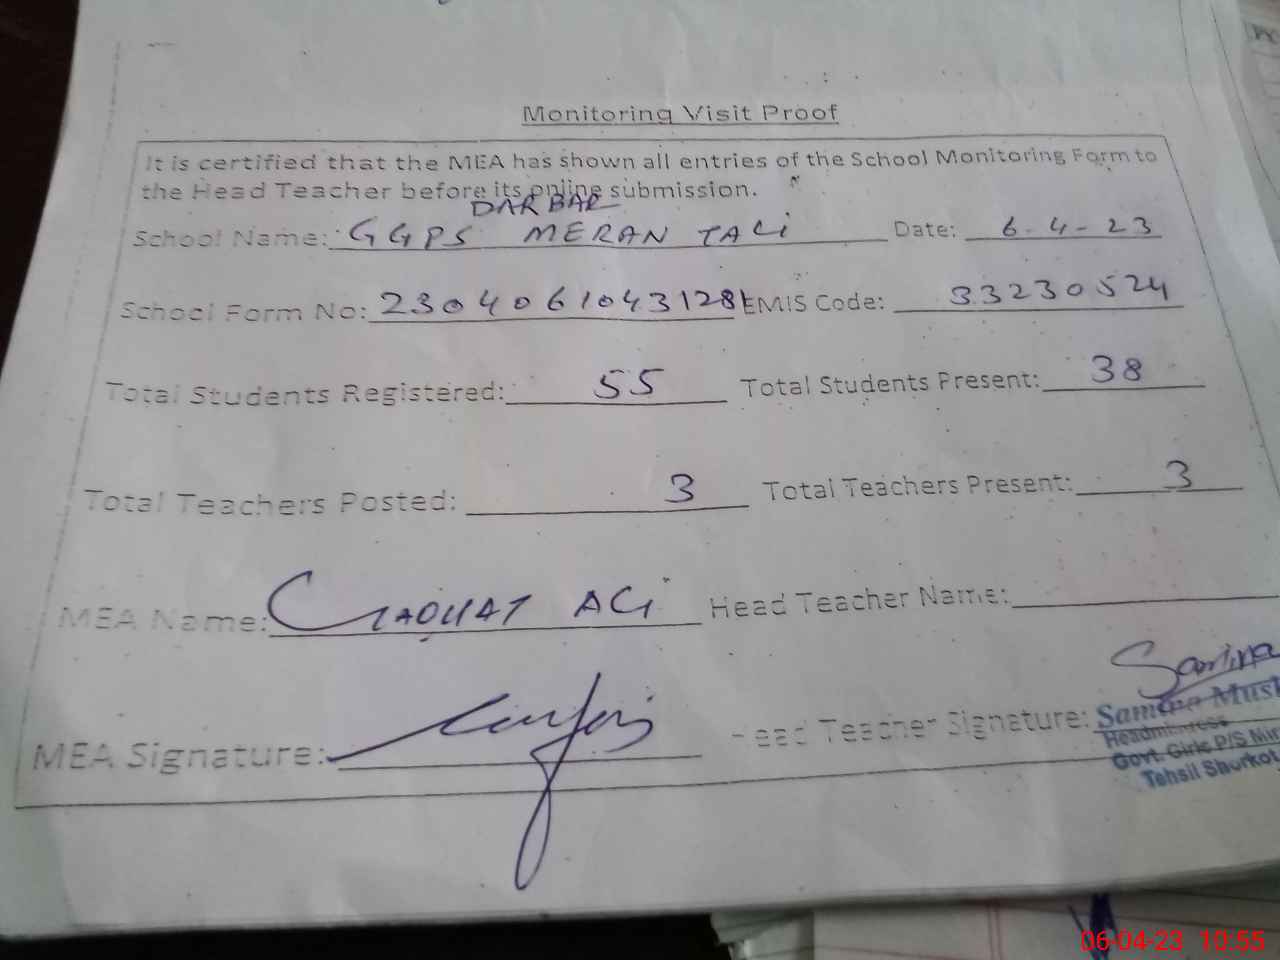 Monitoring Visit Proof
It is certified that the MEA has shown all entries of the School Monitoring Form to
the Head Teacher before its online submission.
DARBAR
School Name: GGPS MERAN TALi Date: 6-4-23
School Form No: 23040610431281 EMIS Code: 33230524
Total Students Registered: 55 Total Students Present: 38
Total Teachers Posted: 3 Total Teachers Present: 3
MEA Name: LIAQUAT ALI Head Teacher Name:
Samina
MEA Signature: Head Teacher Signature: Samina Must
Headmistress
Govt. Girls P/S Mir
Tehsil Shurkot
06-04-23 10:55